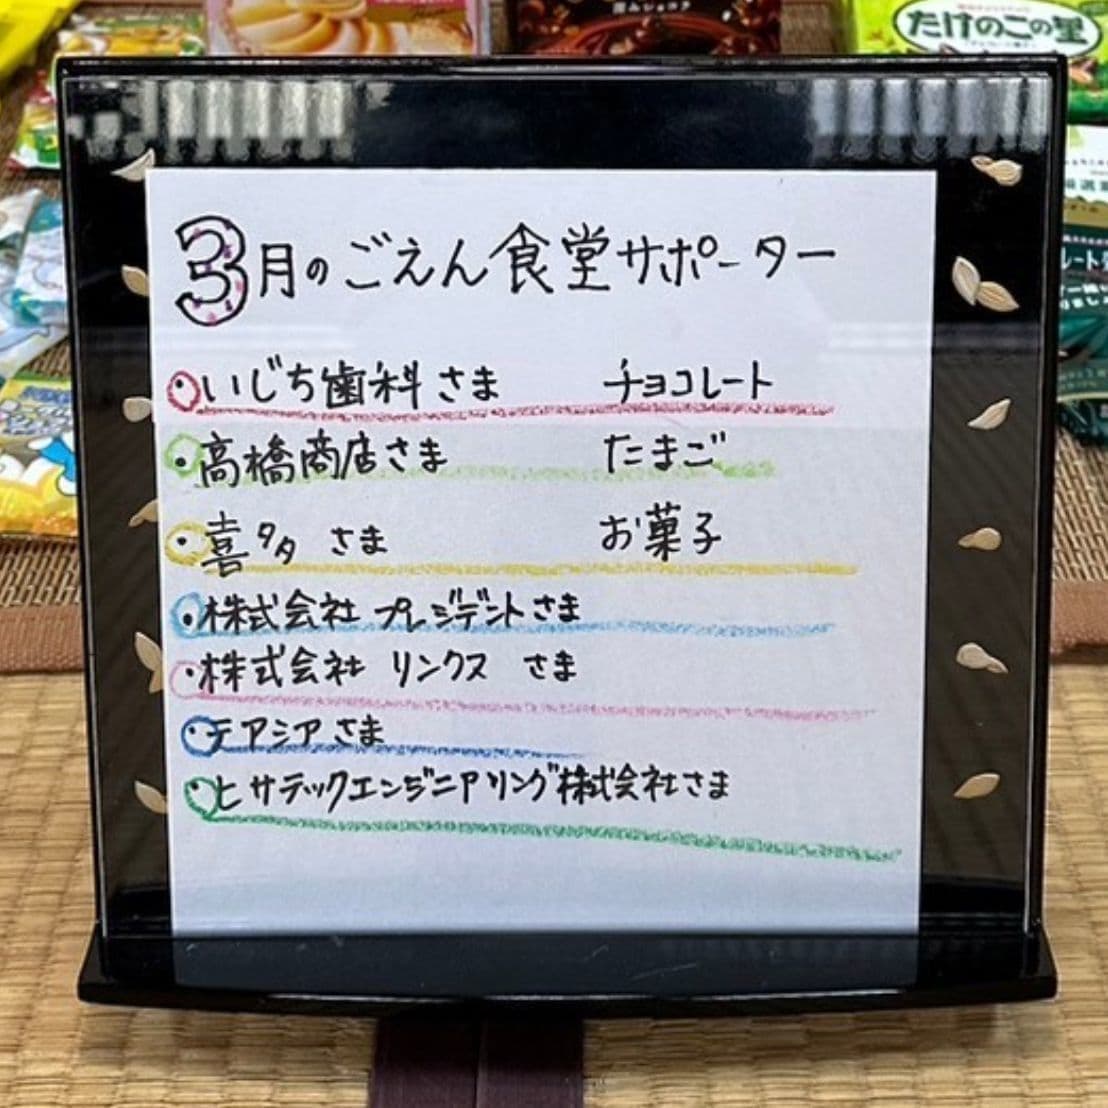 たけのこの里
3月のごえん食堂サポーター
いじち歯科さま チョコレート
高橋商店さま たまご
喜多さま お菓子
株式会社 プレジデントさま
株式会社 リンクス さま
テアシアさま
ヒサテックエンジニアリング株式会社さま